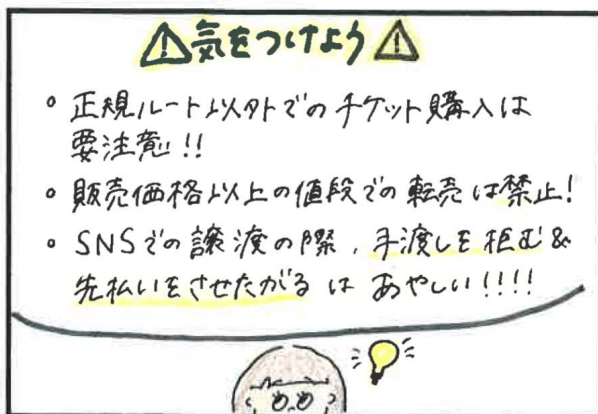 ⚠気をつけよう⚠
。正規ルート以外でのチケット購入は
要注意!!
。販売価格以上の値段での転売は禁止!
。SNSでの譲渡の際、手渡しを拒む&
先払いをさせたがる は あやしい!!!!